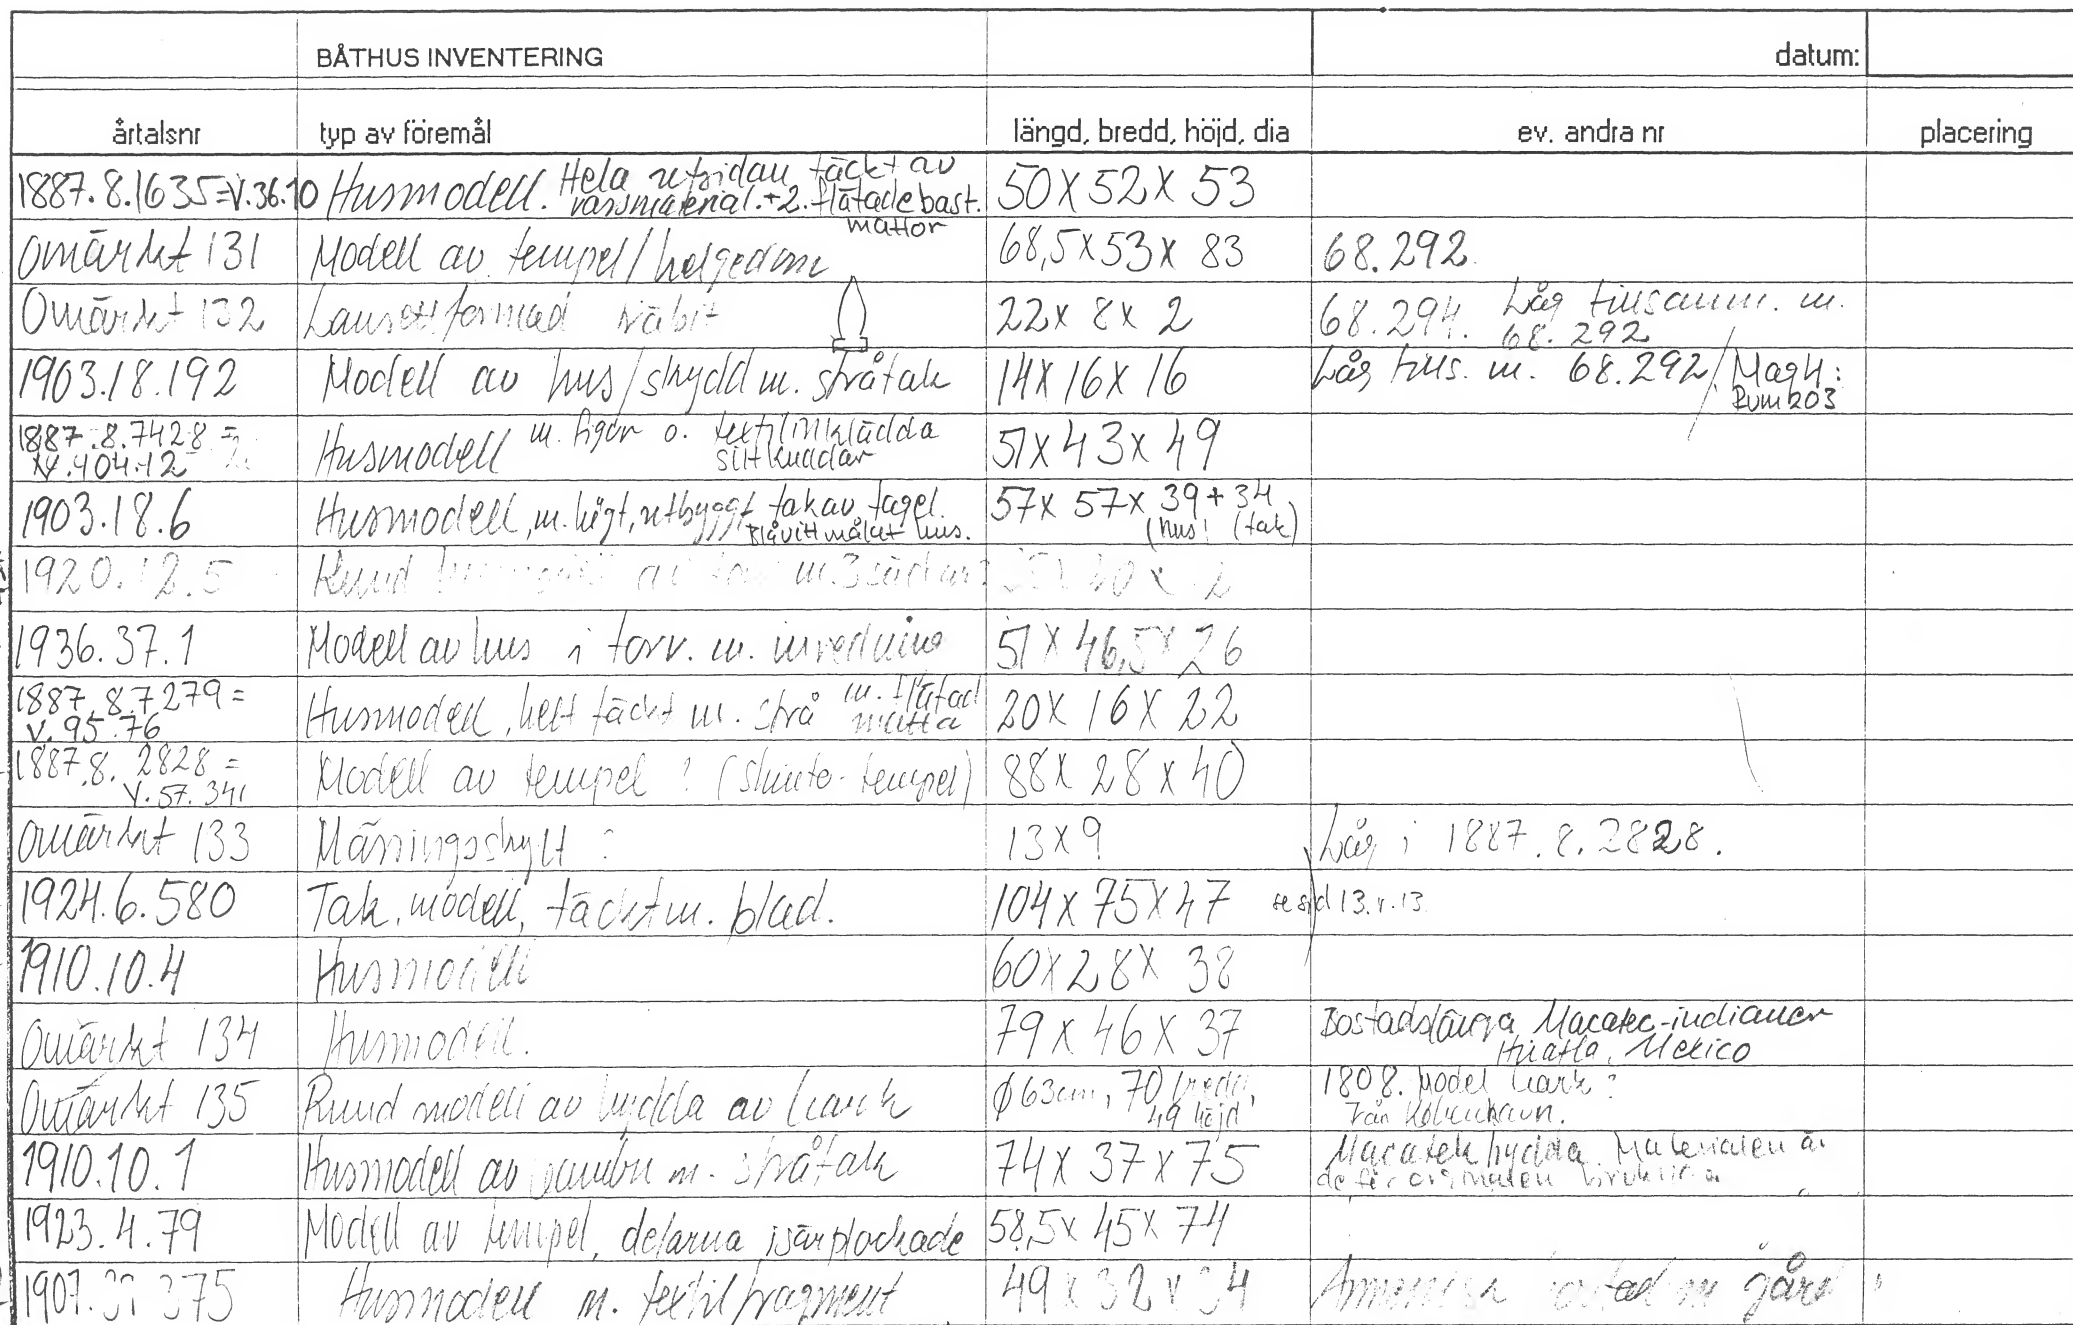 BÅTHUS INVENTERING datum:
årtalsnr typ av föremål längd, bredd, höjd, dia ev. andra nr placering
1887.8.1635=V.36.10 Husmodell. Hela utsidan täckt av 50 x 52 x 53
vassmaterial.+2. flätade bast.
mattor
Omärkt 131 Modell av tempel/helgedom 68,5x53x 83 68.292
Omärkt 132 Lansettformad träbit 22x 8x 2 68.294. Låg tillsamm. m.
68.292
1903.18.192 Modell av hus/skydd m. stråtak 14x16x16 Låg tills. m. 68.292 / Mag4:
Rum203
1887.8.7428=
V.404.12 Husmodell m. figur o. textilinklädda 51x43x49
sittkuddar
1903.18.6 Husmodell, m. högt, utbyggt tak av tagel. 57x 57x 39+34
Blåvitt målat hus. (hus) (tak)
1920.12.5 Rund av m.
1936.37.1 Modell av hus i torv. m. inredning 51x46,5x26
1887.8.7279=
V.95.76 Husmodell, helt täckt m. strå m. flätad 20x16x22
matta
1887.8. 2828=
V.57.341 Modell av tempel? (shinto-tempel) 88x28x40
Omärkt 133 Mässingsskylt? 13x9 Låg i 1887.8.2828.
1924.6.580 Tak, modell, täckt m. blad. 104x75x47 se sid 13.r.13
1910.10.4 Husmodell 60x28x 38
Omärkt 134 Husmodell. 79x46x37 Bostadslänga Macatec-indianer
Mexico
Omärkt 135 Rund modell av hydda av bark Ø 63cm, 70 bredd, 1808. Model bark?
49 höjd Från København.
1910.10.1 Husmodell av bambu m. stråtak 74x37x75 Macatek hydda Materialen är
de för
1923.4.79 Modell av tempel, delarna isärplockade 58,5x45x74
1907. 375 Husmodell m. textilfragment 49x32x34 m gård